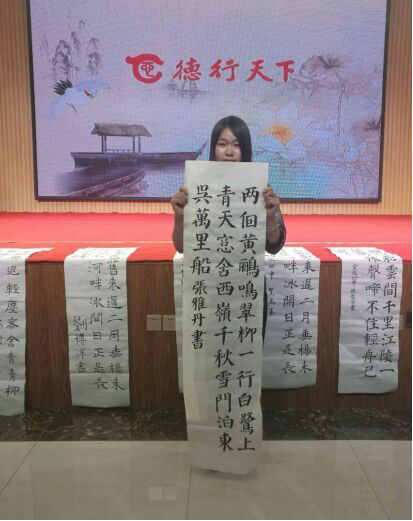 德行天下
两個黄鸝鳴翠柳一行白鷺上
青天窓含西嶺千秋雪門泊東
吳萬里船張雅丹書
雲間千里江陵一
聲啼不住輕舟已
来遲二月垂楊未
畔冰開日正是長
舊来遲二月垂楊未
河畔冰開日正是長
浥輕塵客舍青青柳